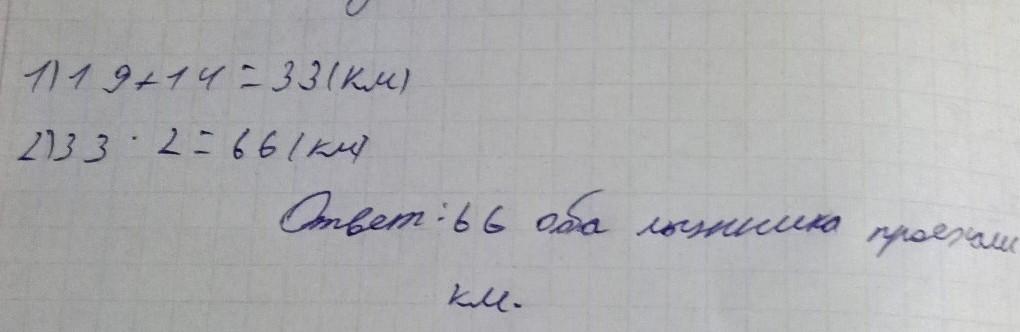 1) 19+14=33(км)
2) 33 · 2=66(км)
Ответ: 66 оба лыжника проехали
км.